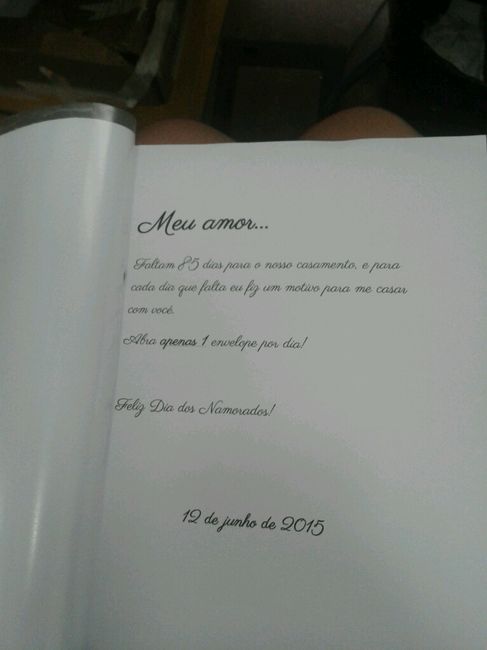 Meu amor...
Faltam 85 dias para o nosso casamento, e para
cada dia que falta eu fiz um motivo para me casar
com você.
Abra apenas 1 envelope por dia!
Feliz Dia dos Namorados!
12 de junho de 2015